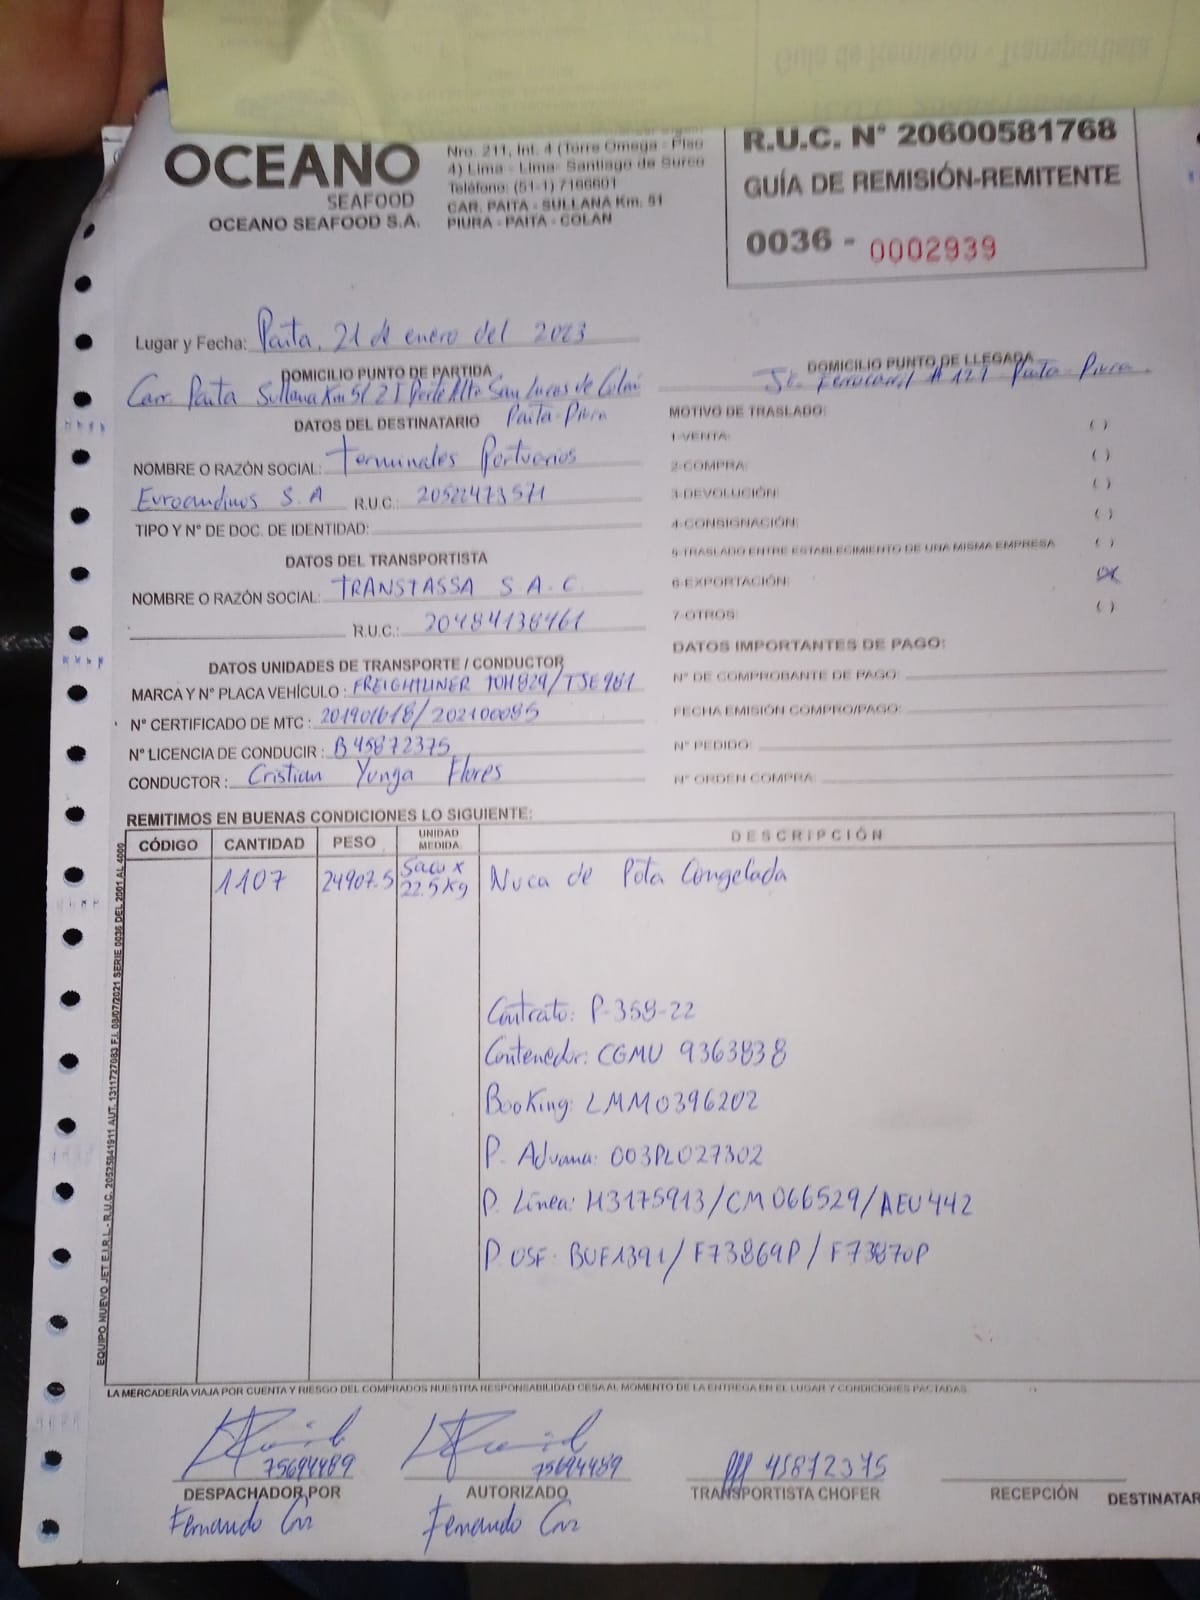 OCEANO
SEAFOOD
OCEANO SEAFOOD S.A.
Nro. 211, Int. 4 (Torre Omega - Piso
4) Lima - Lima- Santiago de Surco
Teléfono: (51-1) 7166601
CAR. PAITA - SULLANA Km. 51
PIURA - PAITA - COLAN
R.U.C. N° 20600581768
GUÍA DE REMISIÓN-REMITENTE
0036 - 0002939
Lugar y Fecha: Paita, 21 de enero del 2023
DOMICILIO PUNTO DE PARTIDA
Carr. Paita Sullana Km 51 Parte Alta San Lucas de Colán
Paita-Piura
DOMICILIO PUNTO DE LLEGADA
Jr. Ferrocarril # 127 Paita-Piura.
DATOS DEL DESTINATARIO
NOMBRE O RAZÓN SOCIAL: Terminales Portuarios
Euroandinos S.A R.U.C.: 20522473571
TIPO Y N° DE DOC. DE IDENTIDAD:
DATOS DEL TRANSPORTISTA
NOMBRE O RAZÓN SOCIAL: TRANSTASSA S.A.C.
R.U.C.: 20484138461
DATOS UNIDADES DE TRANSPORTE / CONDUCTOR
MARCA Y N° PLACA VEHÍCULO: FREIGHTLINER TOH829/TSE981
N° CERTIFICADO DE MTC:
N° LICENCIA DE CONDUCIR: B45872375
CONDUCTOR: Cristian Yunga Flores
MOTIVO DE TRASLADO:
1-VENTA: ( )
2-COMPRA: ( )
3-DEVOLUCIÓN: ( )
4-CONSIGNACIÓN: ( )
5-TRASLADO ENTRE ESTABLECIMIENTO DE UNA MISMA EMPRESA ( )
6-EXPORTACIÓN: (X)
7-OTROS: ( )
DATOS IMPORTANTES DE PAGO:
N° DE COMPROBANTE DE PAGO:
FECHA EMISIÓN COMPRO/PAGO:
N° PEDIDO:
N° ORDEN COMPRA:
REMITIMOS EN BUENAS CONDICIONES LO SIGUIENTE:
CÓDIGO CANTIDAD PESO UNIDAD MEDIDA DESCRIPCIÓN
1107 24907.5 Saco x 22.5Kg Nuca de Pota Congelada
Contrato: P-358-22
Contenedor: CGMU 9363838
Booking: LMM0396202
P. Aduana: 003PL027302
P. Linea: H3175913/CM066529/AEU442
P. OSF: BUF1391/F73869P/F73870P
EQUIPO NUEVO JET E.I.R.L - R.U.C. 20525841911 AUT. 1311727083 F.I. 08/07/2021 SERIE 0036 DEL 2001 AL 4000
LA MERCADERÍA VIAJA POR CUENTA Y RIESGO DEL COMPRADOS NUESTRA RESPONSABILIDAD CESA AL MOMENTO DE LA ENTREGA EN EL LUGAR Y CONDICIONES PACTADAS
75694489 75694489 45872375
DESPACHADOR POR AUTORIZADO TRANSPORTISTA CHOFER RECEPCIÓN DESTINATAR
Fernando Fernando